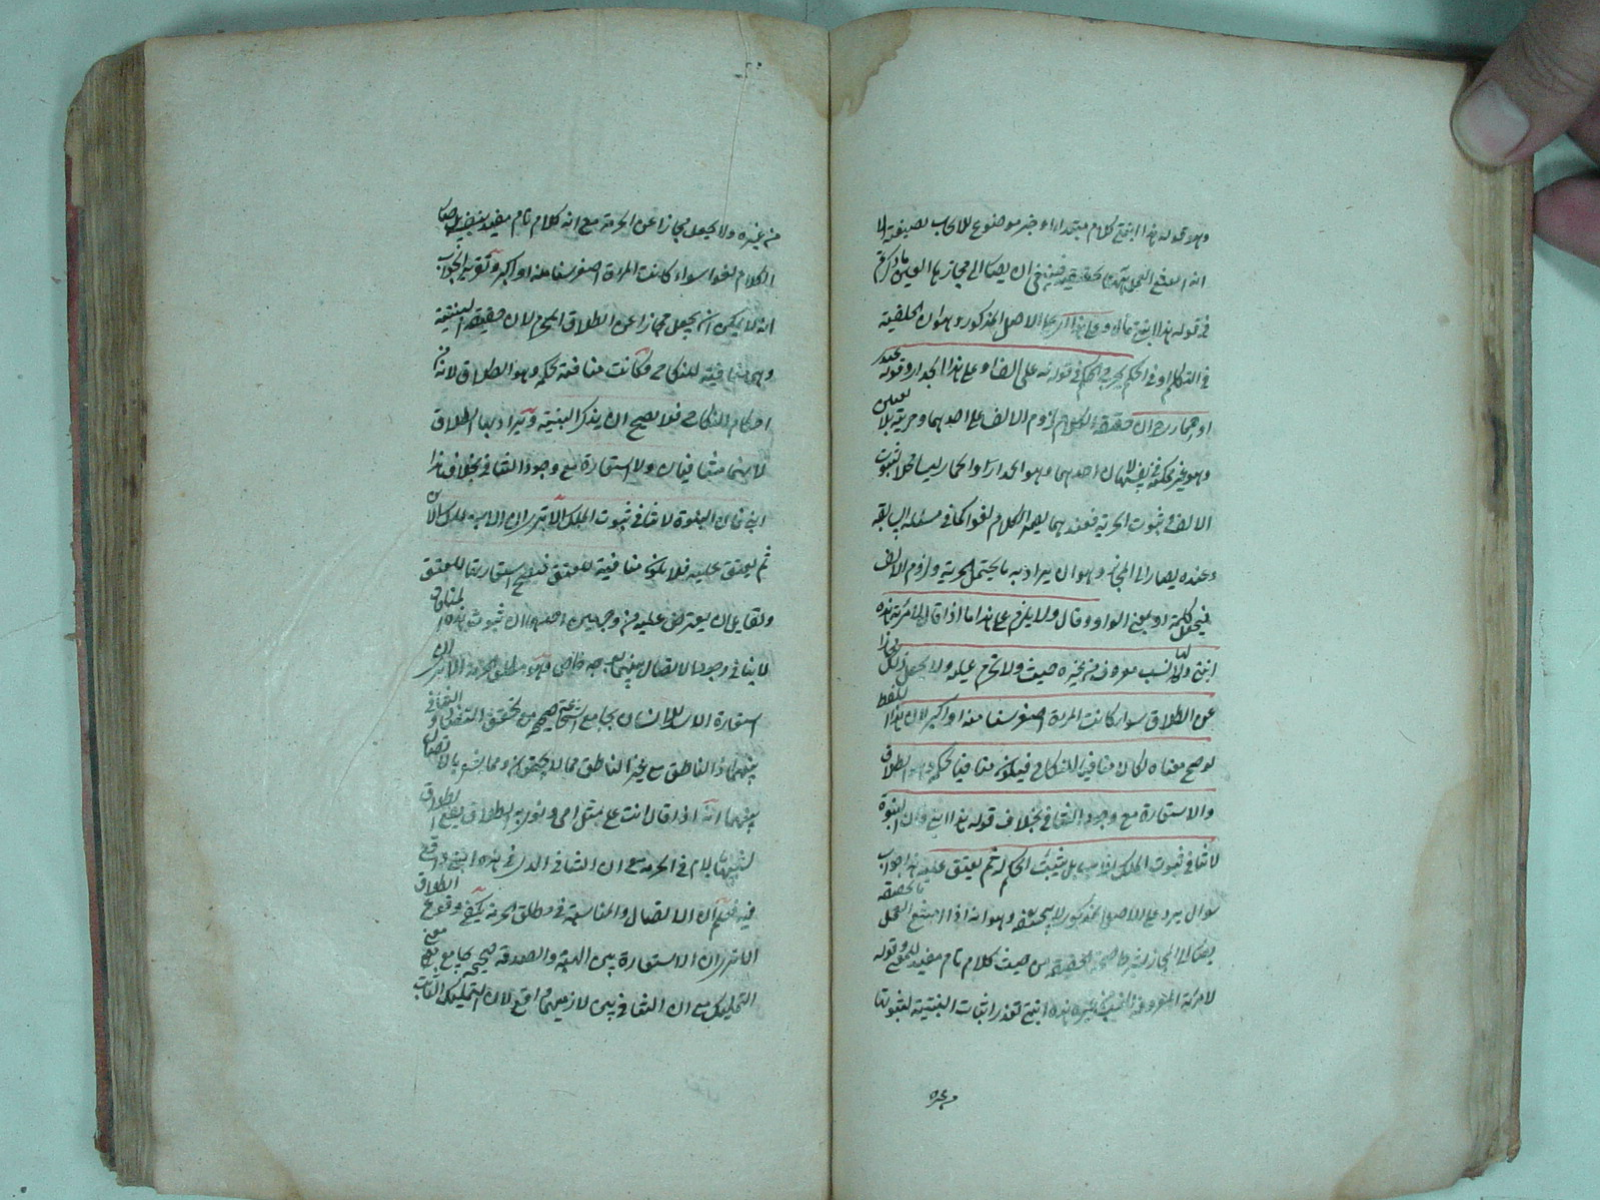 وهو قوله هذا ابني كلام مبتدأ وخبر موضوع للايجاب بصيغته الا
انه امتنع العمل به بحقيقته فينبغي ان يصار الى مجازها
في قوله هذا ابني وعلى هذا الاصل المذكور وهو ان الخلفية
في التكلم او في الحكم يجرى الحكم في قوله له على الف او على هذا الجدار وقوله عبدى
او حمارى حر ان حقيقة الكلام لزوم الالف على احدهما وحرية بلا تعيين
وهو غير ممكن لان احدهما وهو الجدار او الحمار ليسا محلا لثبوت
الالف في ثبوت الحرية فعندهما يصير الكلام لغوا كما في مسئلة السابقة
وعنده يصار الى المجاز وهو ان يراد به ما يحتمل الحرية ولزوم الالف
فيجعل كلمة او بمعنى الواو وقال ولا يلزم على هذا ما اذا قال لامرأته هذه
ابنتي ولها نسب معروف من غيره حيث ولا تحرم عليه ولا يجعل ذلك مجازا
عن الطلاق سواء كانت المرأة اصغر سنا منه او اكبر لان هذا اللفظ
لو صح معناه لكان منافيا للنكاح فيكون منافيا لحكمه وهو الطلاق
والاستعارة مع وجود التنافي بخلاف قوله هذا ابني فان البنوة
لا تنافي ثبوت الملك للاب بل يثبت الملك له ثم يعتق عليه هذا جواب
سوال يرد على الاصل المذكور لابي حنيفة وهو انه اذا امتنع العمل بالحقيقة
يصار الى المجاز بشرط صحة الحقيقة من حيث كلام تام مفيد للمعنى وقوله
لامرأته المعروفة النسب من غيره هذه ابنتي تعذر اثبات البنتية لثبوتها
من غيره
من غيره ولا يجعل مجازا عن الحرمة مع انه كلام تام مفيد
الكلام لغوا سواء كانت المرأة اصغر سنا منه او اكبر وتقرير الجواب
انه لا يمكن ان يجعل مجازا عن الطلاق المحرم لان حقيقة البنتية
وهي منافية للنكاح وكانت منافية لحكمه وهو الطلاق لانه من
احكام النكاح فلا يصح ان يذكر البنتية ويراد بها الطلاق
لانهما متنافيان ولا استعارة مع وجود التنافي بخلاف هذا
ابني فان البنوة لا تنافي ثبوت الملك الا ترى ان الاب يملك الابن
ثم يعتق عليه فلا يكون منافية للعتق فيصح استعارتها للعتق
ولقايل ان يعترض عليه من وجهين احدهما ان ثبوت هذه المنافاة
لا ينافي وجود الاتصال بينهما بوجه خاص وهو مطلق الحرمة الا ترى ان
استعارة الاسد للانسان بجامع الشجاعة صحيحة مع تحقق التنافي
بينهما اذ الناطق مع غير الناطق مما لا يجتمعان ومما يشعر بالاتصال
بينهما انه اذا قال انت على مثل امى ونوى به الطلاق يقع الطلاق
لتشبيهها بالام في الحرمة مع ان التنافي الذى في هذه ابنتي واقع
فيه فعلم ان الاتصال والمناسبة في مطلق الحرمة يكفى وقوع الطلاق
الا ترى ان الاستعارة بين الهبة والصدقة صحيحة بجامع معنى
التمليك مع ان التنافي بين لازميهما واقع لان التمليك الثابت